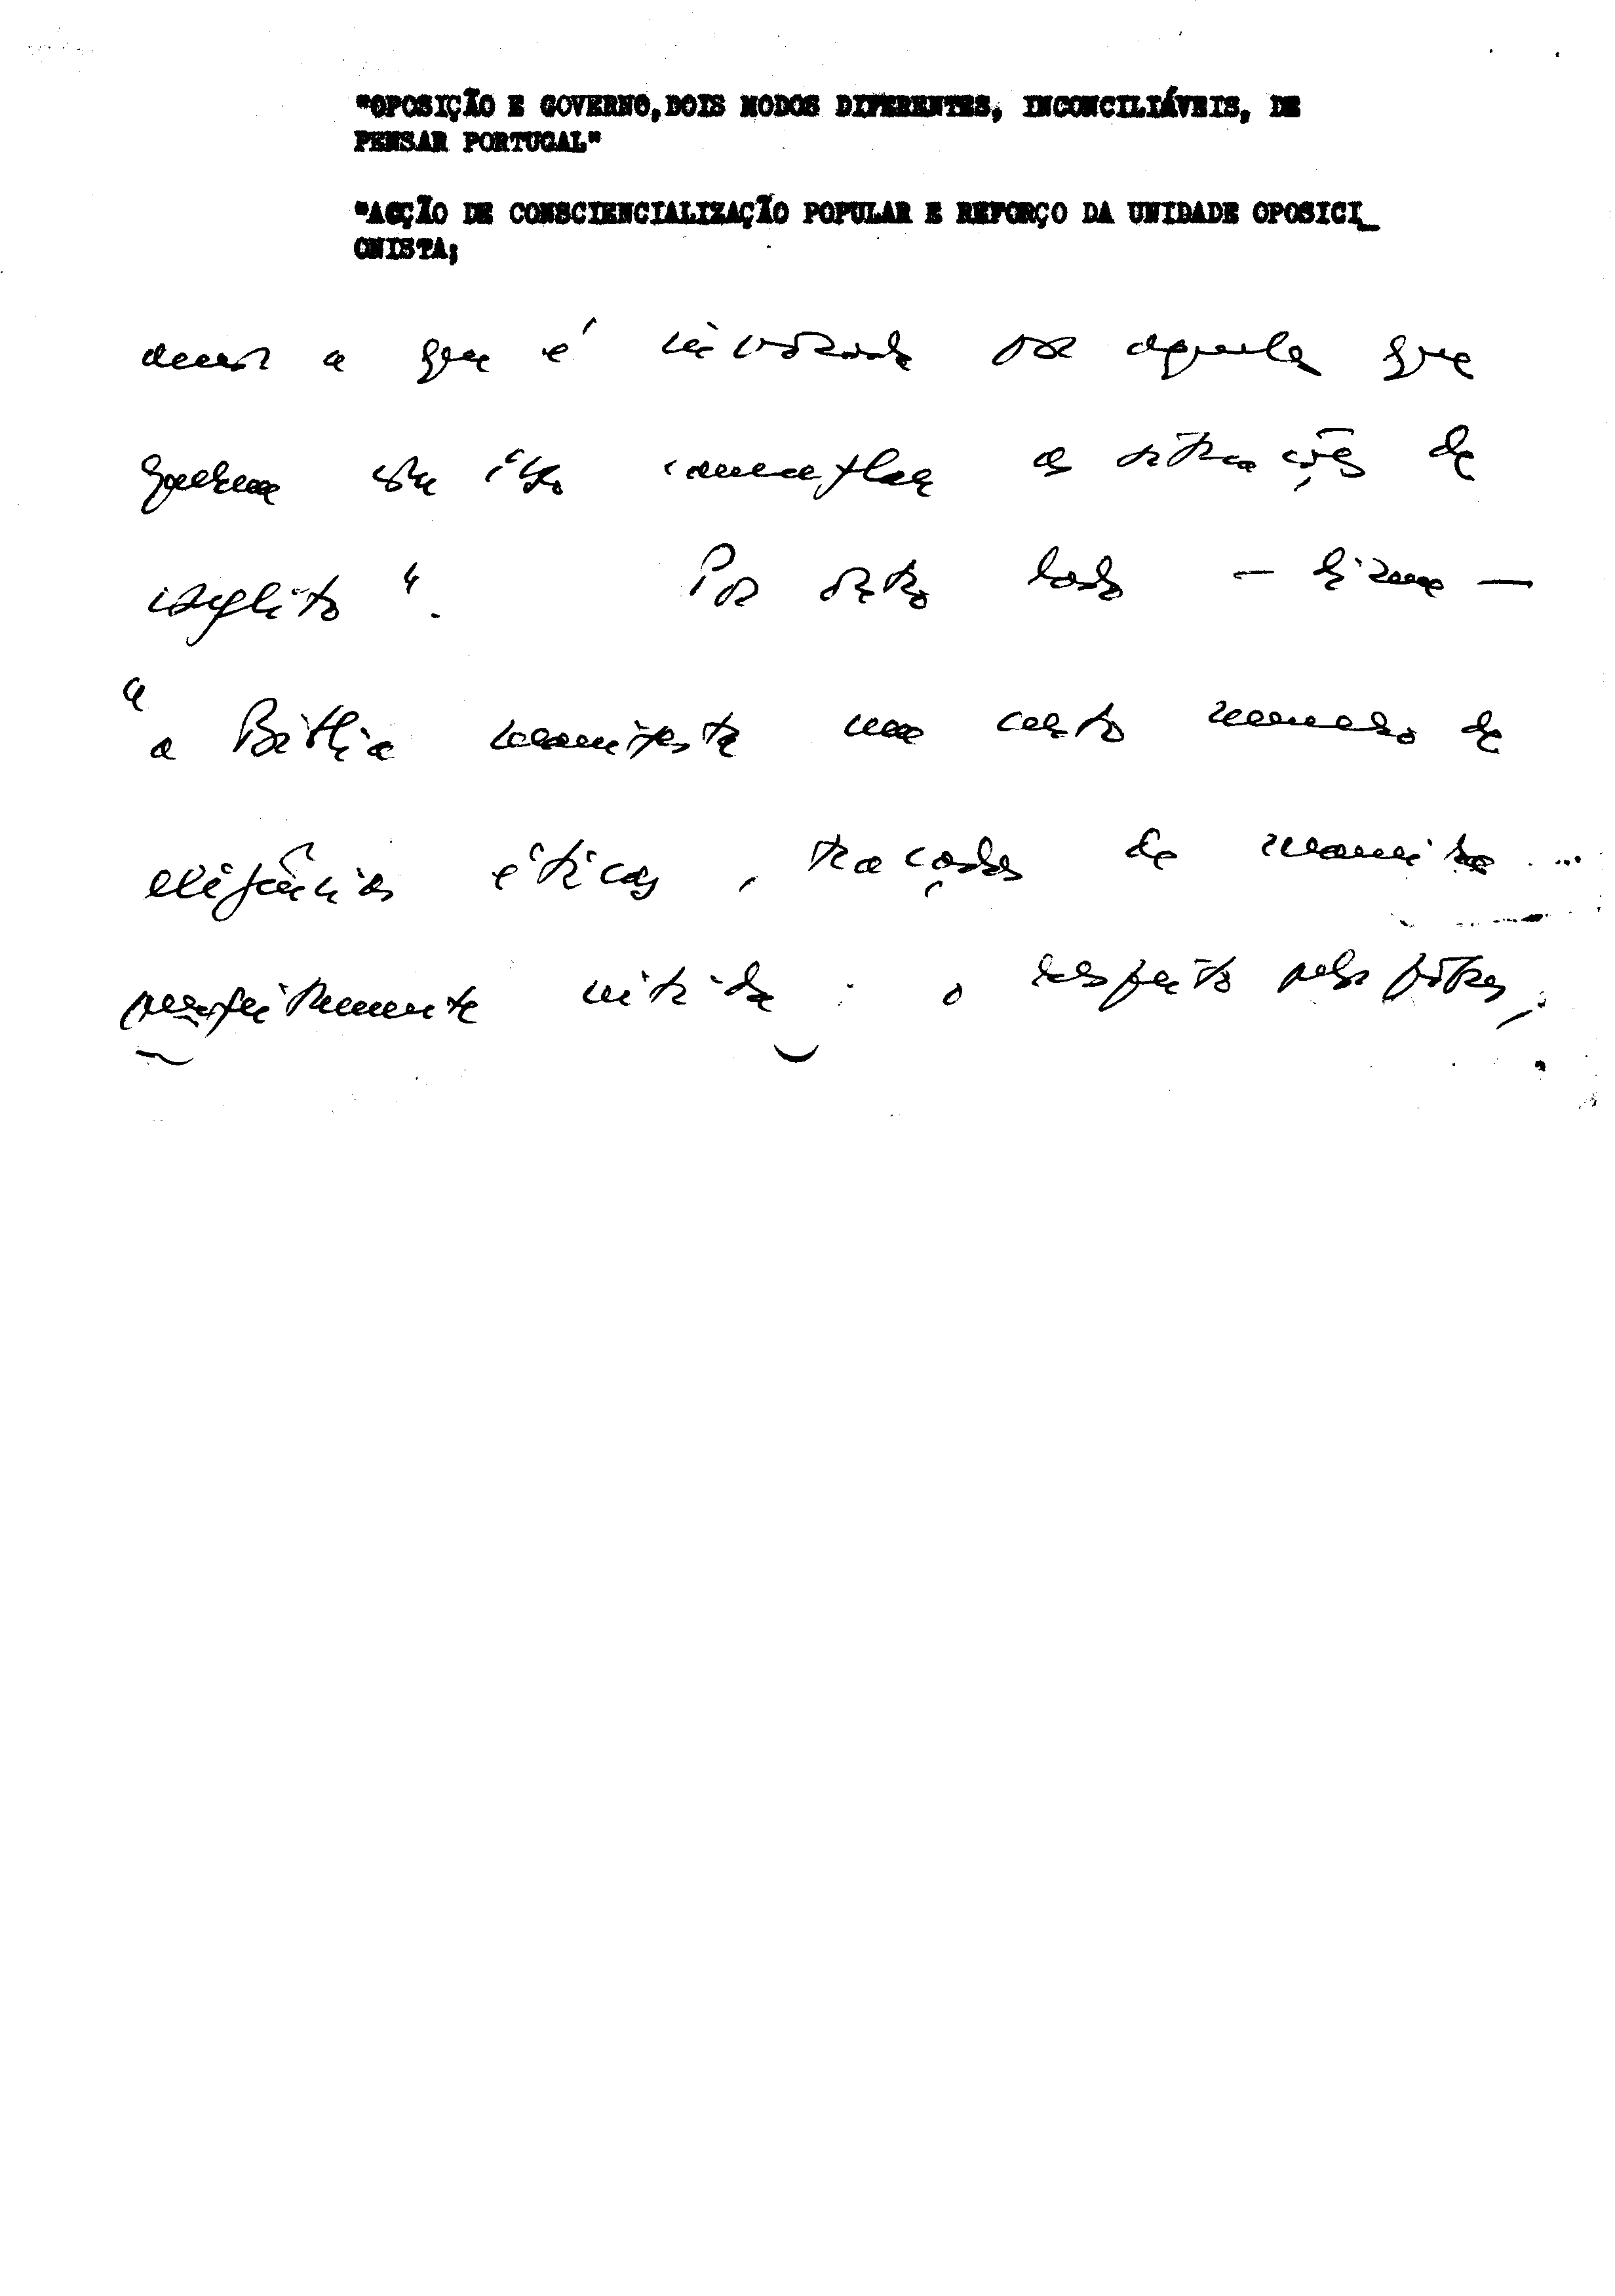 "OPOSIÇÃO E GOVERNO, DOIS MODOS DIFERENTES, INCONCILIÁVEIS, DE
PENSAR PORTUGAL"
"ACÇÃO DE CONSCIENCIALIZAÇÃO POPULAR E REFORÇO DA UNIDADE OPOSICI_
ONISTA;
amor a que é invocado por aqueles que
querem com isso camuflar as situações de
conflito". Por outro lado - dizem -
"a Bíblia manifesta um certo número de
exigências éticas, traçadas de maneira
perfeitamente nítida: o respeito pelos pobres,